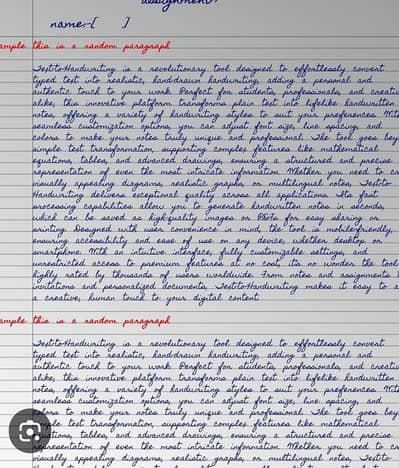 assignment
name:-[ ]
ample this is a random paragraph
Text-to-Handwriting is a revolutionary tool designed to effortlessly convert
typed text into realistic, hand-drawn handwriting, adding a personal and
authentic touch to your work. Perfect for students, professionals, and creativ
alike, this innovative platform transforms plain text into lifelike handwritten
notes, offering a variety of handwriting styles to suit your preferences. With
seamless customization options, you can adjust font size, line spacing, and
colors to make your notes truly unique and professional. The tool goes bey
simple text transformation, supporting complex features like mathematical
equations, tables, and advanced drawings, ensuring a structured and precise
representation of even the most intricate information. Whether you need to cr
visually appealing diagrams, realistic graphs, or multilingual notes, Text-to-
Handwriting delivers exceptional quality across all applications. Its fast
processing capabilities allow you to generate handwritten notes in seconds,
which can be saved as high-quality images or PDFs for easy sharing or
printing. Designed with user convenience in mind, the tool is mobile-friendly,
ensuring accessibility and ease of use on any device, whether desktop or
smartphone. With an intuitive interface, fully customizable settings, and
unrestricted access to premium features at no cost, its no wonder the tool
highly rated by thousands of users worldwide. From notes and assignments t
invitations and personalized documents, Text-to-Handwriting makes it easy to a
a creative, human touch to your digital content.
ample this is a random paragraph
Text-to-Handwriting is a revolutionary tool designed to effortlessly convert
typed text into realistic, hand-drawn handwriting, adding a personal and
authentic touch to your work. Perfect for students, professionals, and creativ
alike, this innovative platform transforms plain text into lifelike handwritten
notes, offering a variety of handwriting styles to suit your preferences. With
seamless customization options, you can adjust font size, line spacing, and
colors to make your notes truly unique and professional. The tool goes bey
simple text transformation, supporting complex features like mathematical
equations, tables, and advanced drawings, ensuring a structured and precise
representation of even the most intricate information. Whether you need to cr
visually appealing diagrams, realistic graphs, or multilingual notes, Text-to-